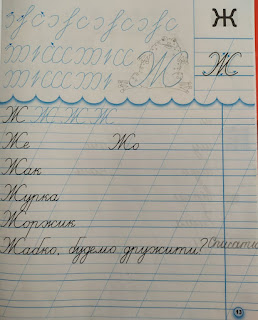 Ж
Ж
Ж Ж Ж Ж
Же Жо
Жак
Журка
Жоржик
Жабко, будемо дружити? Списати
13